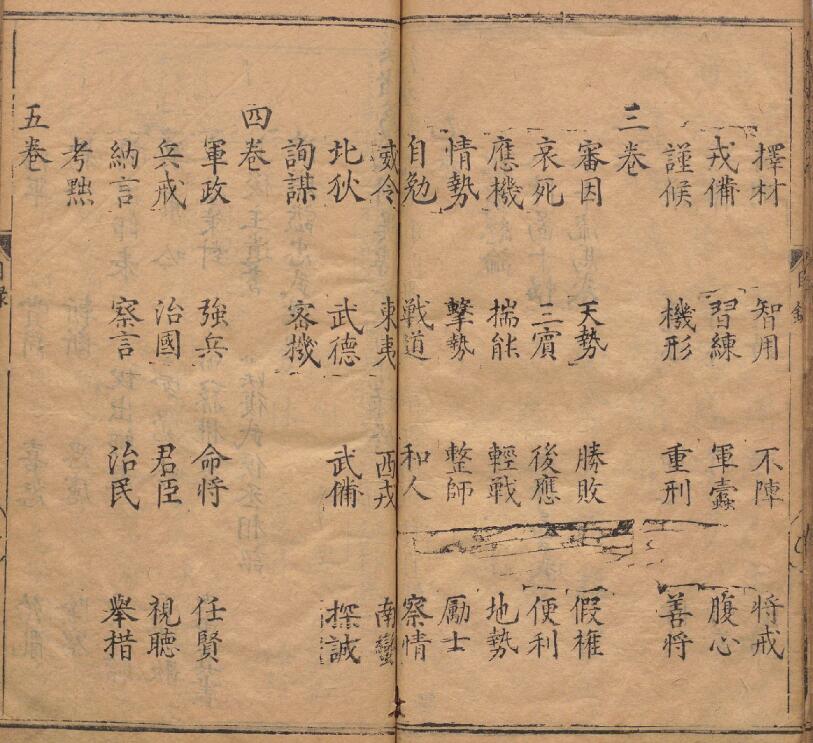 擇材 智用 不陣 將戒
戎備 習練 軍蠹 腹心
謹候 機形 重刑 善將
三卷
審因 天勢 勝敗 假權
哀死 三賓 後應 便利
應機 揣能 輕戰 地勢
情勢 擊勢 整師 勵士
自勉 戰道 和人 察情
威令 東夷 西戎 南蠻
北狄 武德 武備 探誠
詢謀 客機
四卷
軍政 強兵 命將 任賢
兵戒 治國 君臣 視聽
納言 察言 治民 舉措
考黜
五卷
目錄